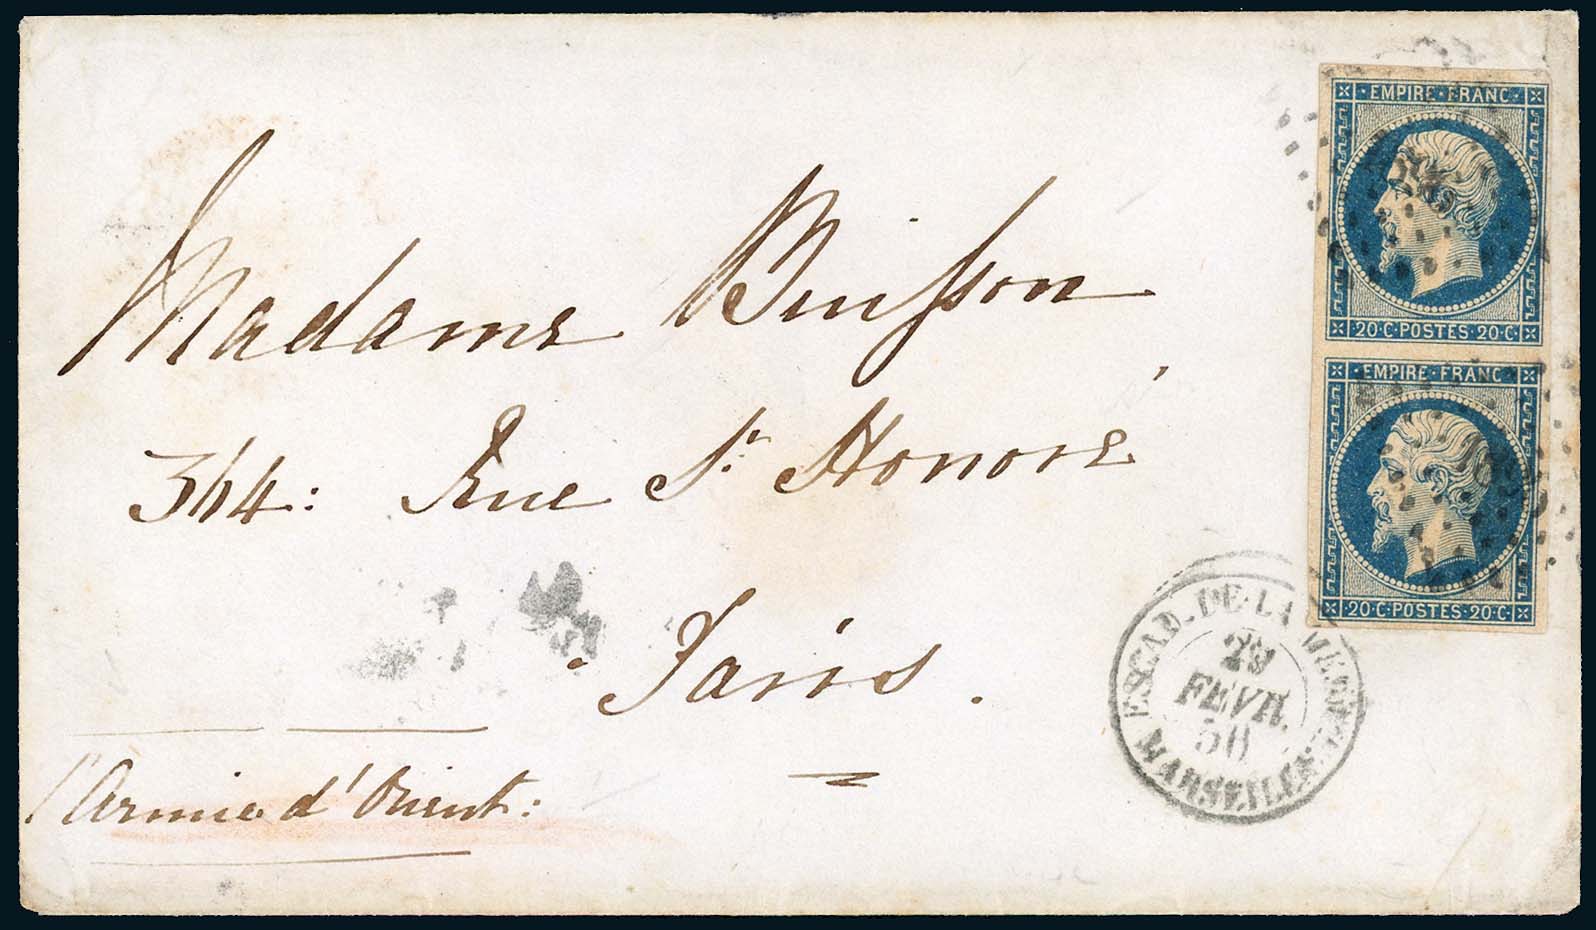 EMPIRE · FRANC ·
20 · C · POSTES · 20 · C ·
EMPIRE · FRANC ·
20 · C · POSTES · 20 · C ·
Madame Buisson
364: Rue St. Honoré
Paris.
ESCAD. DE LA
29
FEVR.
MARSEILLE
l'Armée d'Orient: